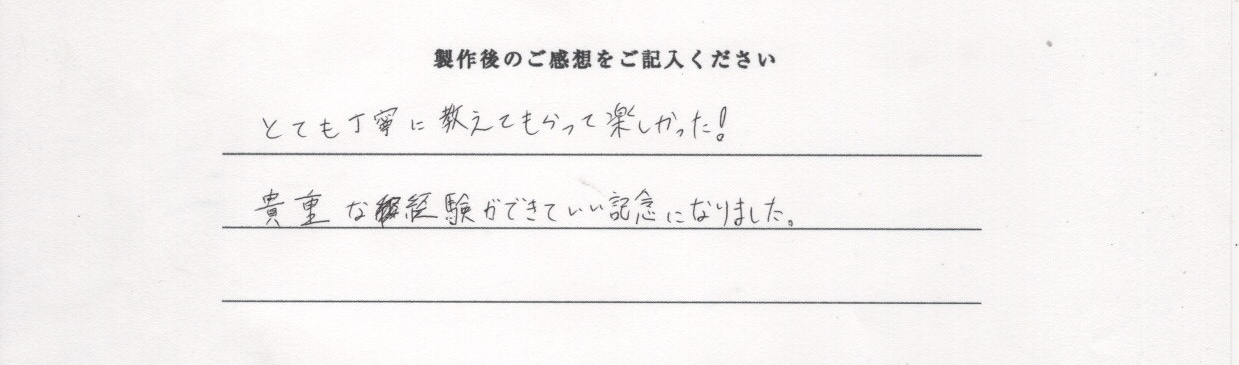 製作後のご感想をご記入ください
とても丁寧に教えてもらって楽しかった!
貴重な経験ができていい記念になりました。